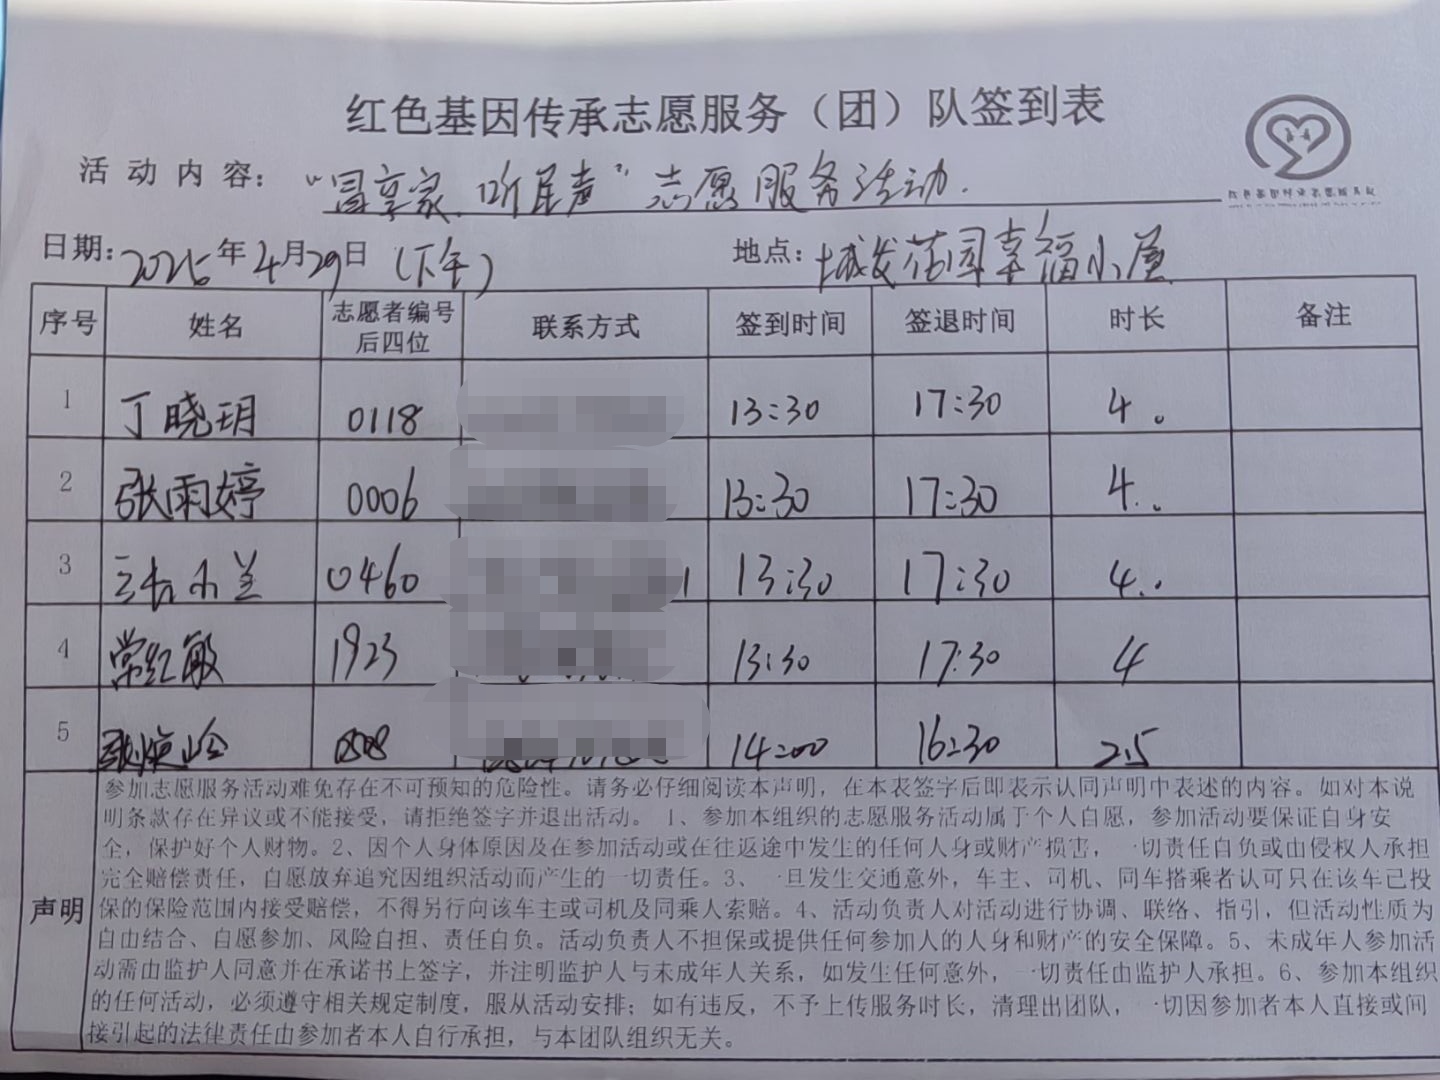 红色基因传承志愿服务（团）队签到表
活动内容：“冒享家、听民声”志愿服务活动.
日期：2025年4月29日（下午） 地点：城发花园幸福小屋
序号 姓名 志愿者编号后四位 联系方式 签到时间 签退时间 时长 备注
1 丁晓玥 0118 13:30 17:30 4.
2 张雨婷 0006 13:30 17:30 4..
3 小兰 0460 13:30 17:30 4..
4 常红敏 1923 13:30 17:30 4
5 0508 14:00 16:30 2.5
声明
参加志愿服务活动难免存在不可预知的危险性。请务必仔细阅读本声明，在本表签字后即表示认同声明中表述的内容。如对本说
明条款存在异议或不能接受，请拒绝签字并退出活动。1、参加本组织的志愿服务活动属于个人自愿，参加活动要保证自身安
全，保护好个人财物。2、因个人身体原因及在参加活动或在往返途中发生的任何人身或财产损害，一切责任自负或由侵权人承担
完全赔偿责任，自愿放弃追究因组织活动而产生的一切责任。3、一旦发生交通意外，车主、司机、同车搭乘者认可只在该车已投
保的保险范围内接受赔偿，不得另行向该车主或司机及同乘人索赔。4、活动负责人对活动进行协调、联络、指引，但活动性质为
自由结合、自愿参加、风险自担、责任自负。活动负责人不担保或提供任何参加人的人身和财产的安全保障。5、未成年人参加活
动需由监护人同意并在承诺书上签字，并注明监护人与未成年人关系，如发生任何意外，一切责任由监护人承担。6、参加本组织
的任何活动，必须遵守相关规定制度，服从活动安排；如有违反，不予上传服务时长，清理出团队，一切因参加者本人直接或间
接引起的法律责任由参加者本人自行承担，与本团队组织无关。